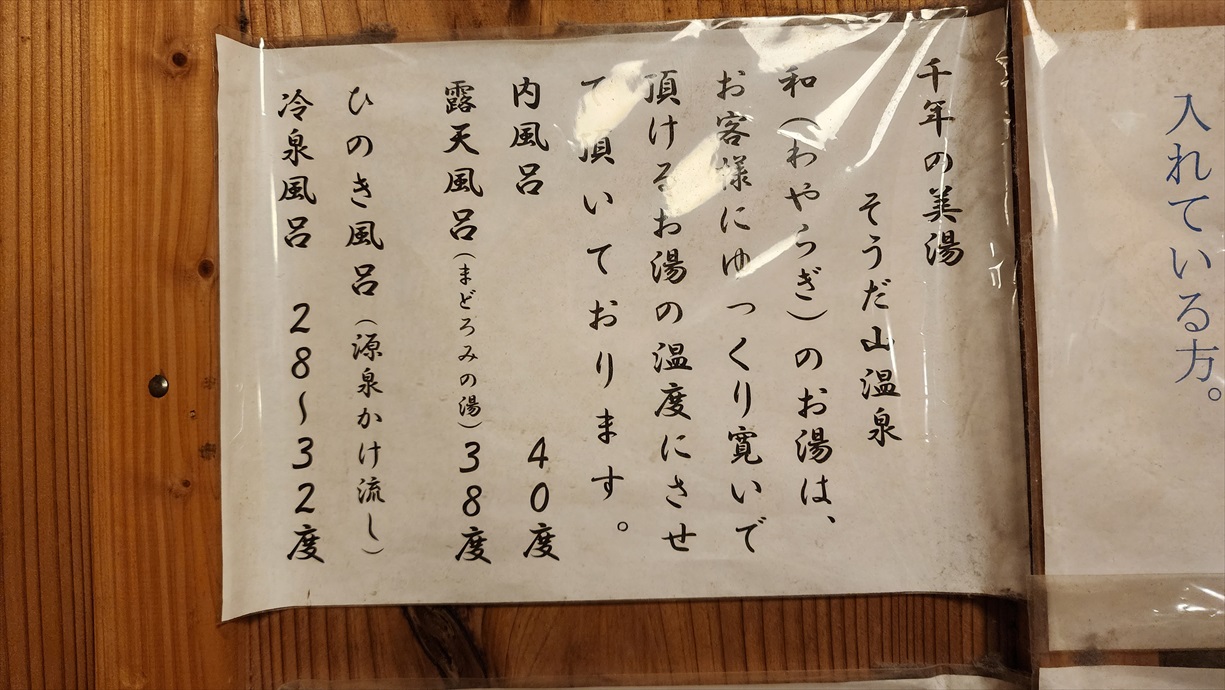 入れている方。
千年の美湯
そうだ山温泉
和(わやらぎ)のお湯は、
お客様にゆっくり寛いで
頂けるお湯の温度にさせ
て頂いております。
内風呂 40度
露天風呂(まどろみの湯)38度
ひのき風呂(源泉かけ流し)
冷泉風呂 28〜32度